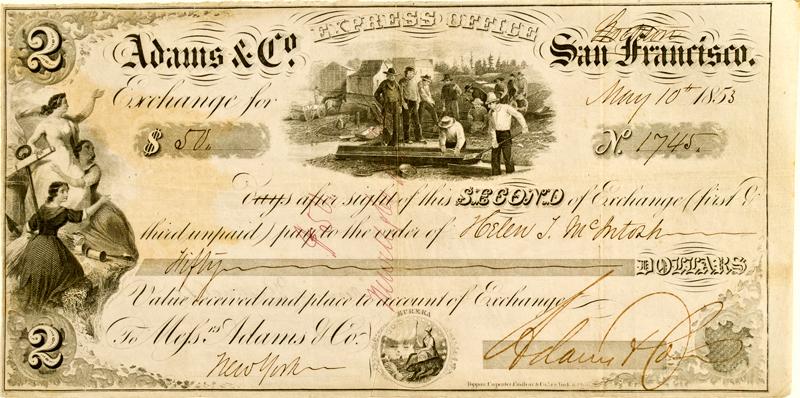 2
EXPRESS OFFICE
Adams & Co. San Francisco.
Exchange for May 10th 1853
$ 50. No 1745.
Days after sight of this SECOND of Exchange (first &
third unpaid) pay to the order of Helen T. McIntosh
Fifty DOLLARS
Value received and place to account of Exchange
To Messrs Adams & Co. Adams & Co
2 New York
EUREKA